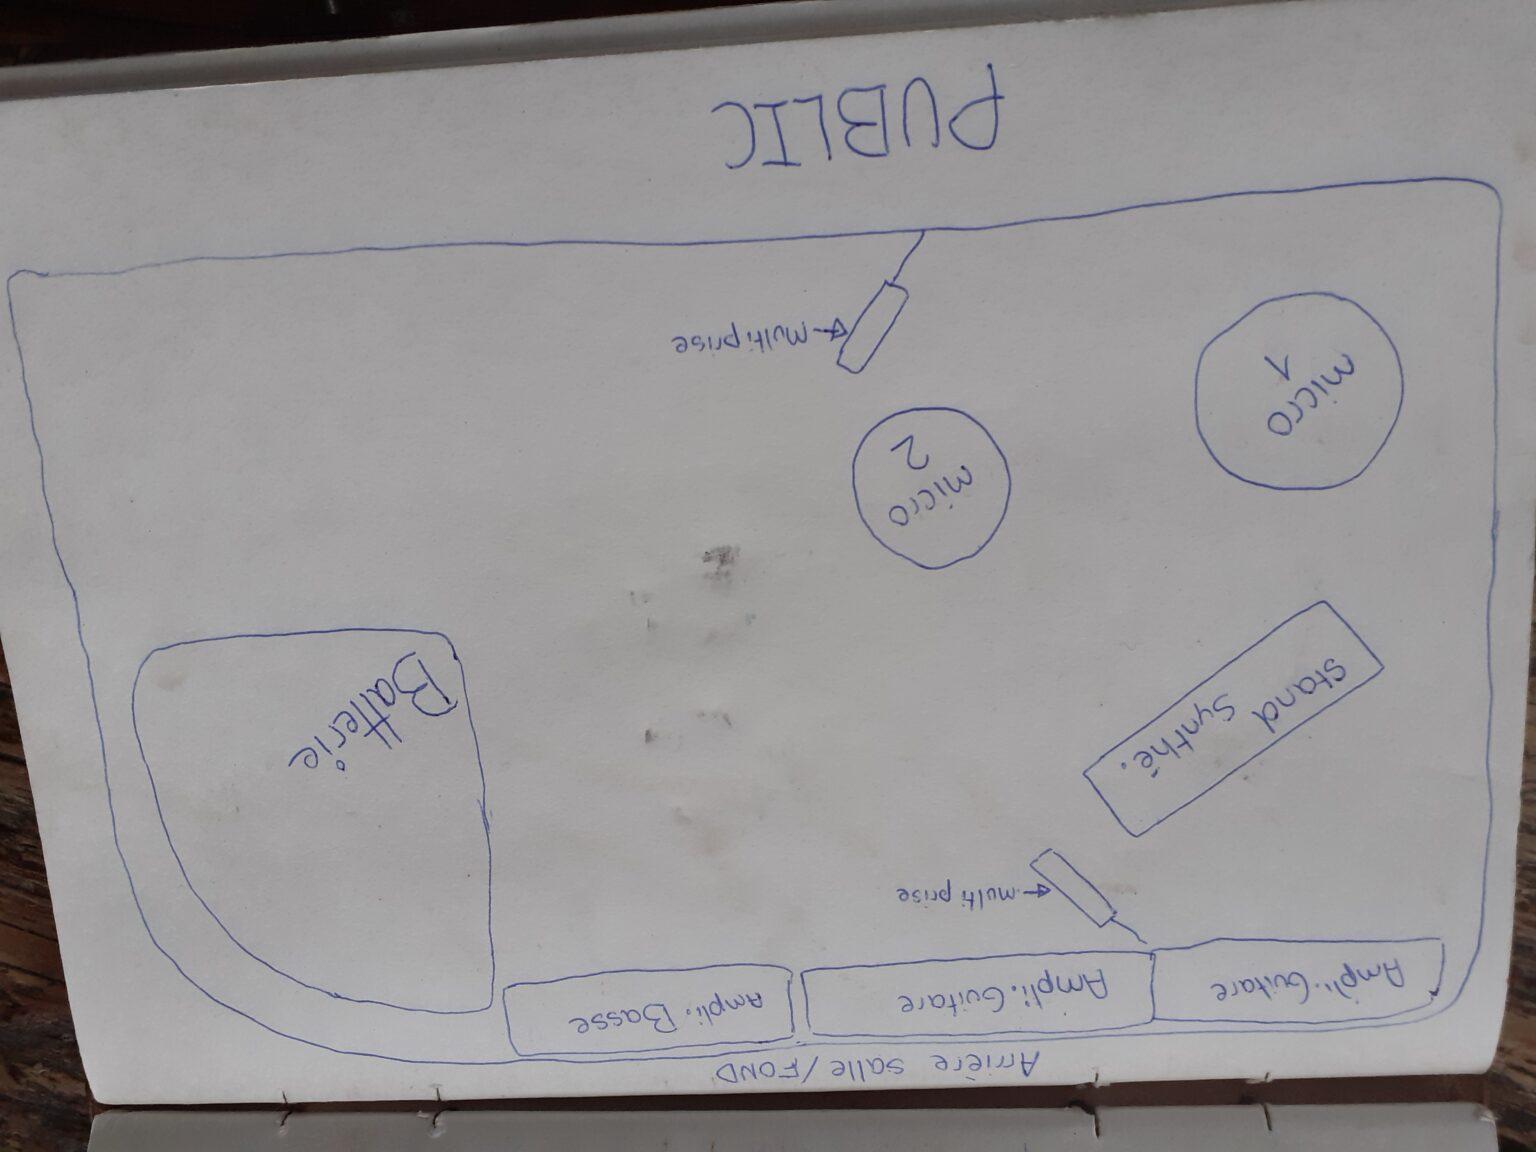 Arrière salle/FOND
Ampli.Guitare
Ampli.Guitare
Ampli.Basse
multiprise
Stand
Synthé.
Batterie
micro
2
micro
1
Multiprise
PUBLIC